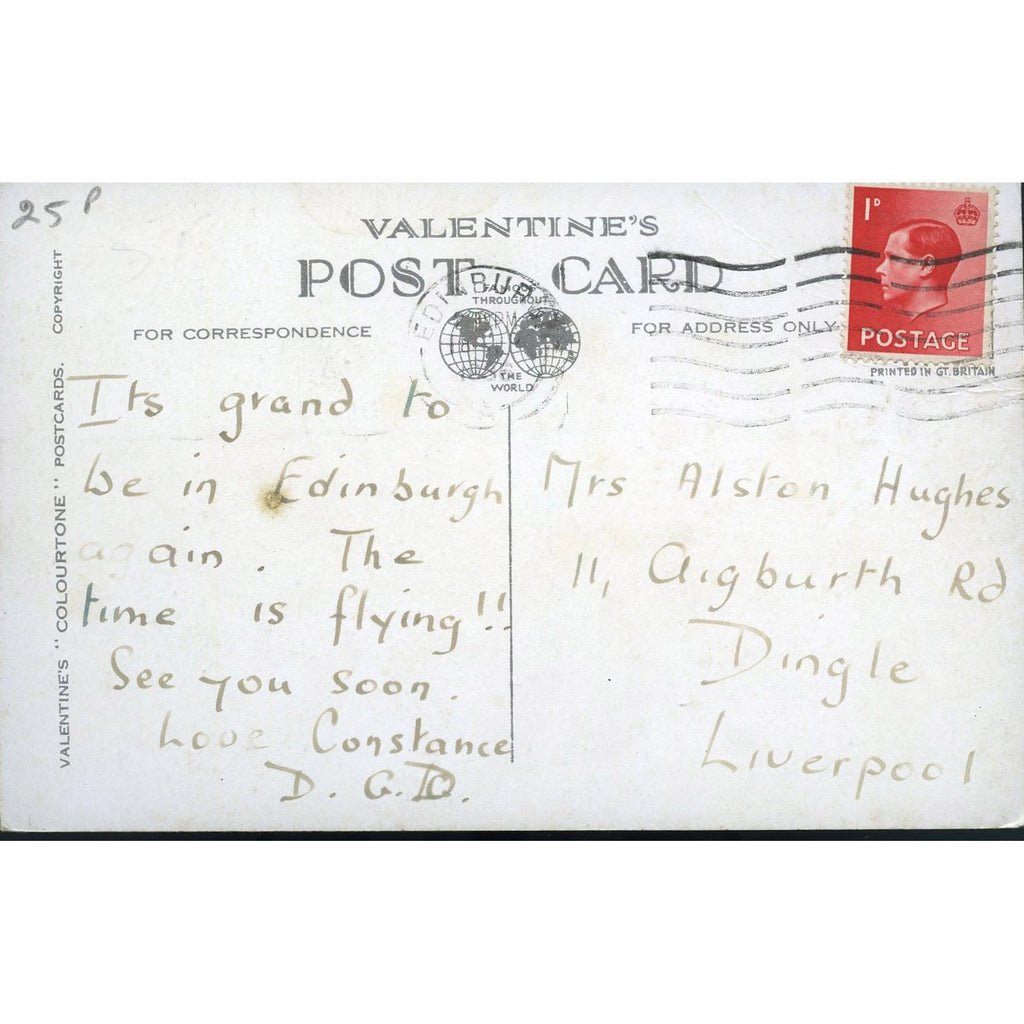 25P
VALENTINE'S
POST CARD
FOR CORRESPONDENCE
FOR ADDRESS ONLY
FAMOUS
THROUGHOUT
THE
WORLD
EDINBUR
1D
POSTAGE
PRINTED IN GT. BRITAIN
VALENTINE'S "COLOURTONE" POSTCARDS. COPYRIGHT
Its grand to
be in Edinburgh
again. The
time is flying!!
See you soon.
Love Constance
D. G. D.
Mrs Alston Hughes
11, Aigburth Rd
Dingle
Liverpool